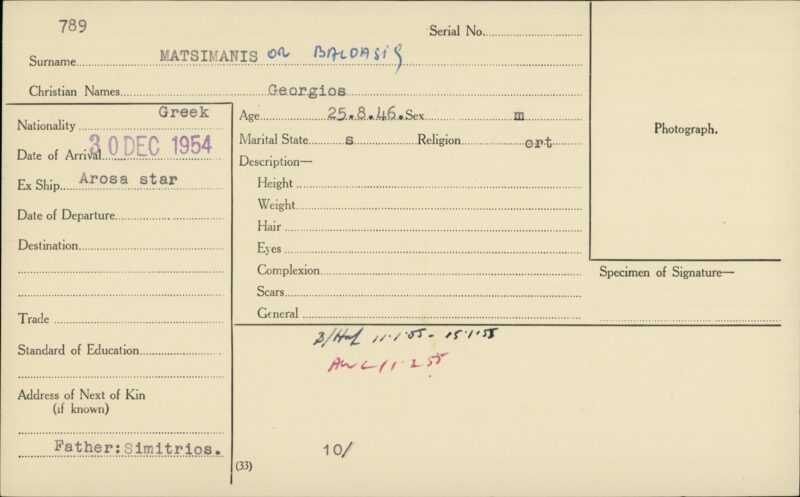 789
Serial No.
Surname MATSIMANIS or BALDASIS
Christian Names Georgios
Nationality Greek
Date of Arrival 30 DEC 1954
Ex Ship Arosa star
Date of Departure
Destination
Trade
Standard of Education
Address of Next of Kin
(if known)
Father:Simitrios.
Age 25.8.46. Sex m
Marital State s Religion ort
Description—
Height
Weight
Hair
Eyes
Complexion
Scars
General
11·1·55 - 15·1·55
11·2·55
10/
(33)
Photograph.
Specimen of Signature—